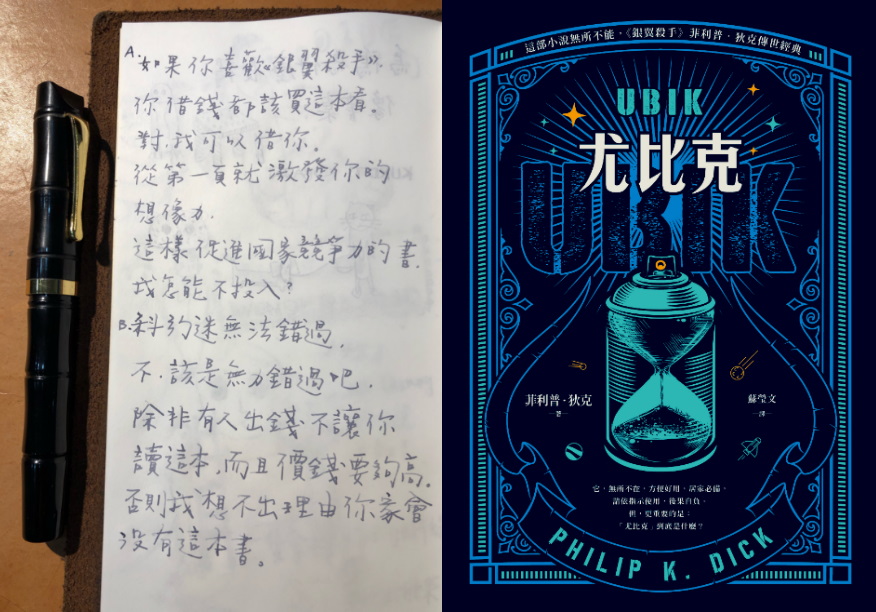 A.如果你喜歡《銀翼殺手》.
你借錢都該買這本看。
對,我可以借你。
從第一頁就激發你的
想像力.
這樣促進國家競爭力的書.
我怎能不投入?
B.科幻迷無法錯過.
不.該是無力錯過吧.
除非有人出錢不讓你
讀這本,而且價錢要夠高.
否則我想不出理由你家會
沒有這本書。
這部小說無所不能,《銀翼殺手》菲利普·狄克傳世經典
UBIK
尤比克
UBIK
菲利普·狄克
著
蘇瑩文
譯
它,無所不在,方便好用,居家必備。
請依指示使用,後果自負。
但,更重要的是:
「尤比克」到底是什麼?
PHILIP K. DICK